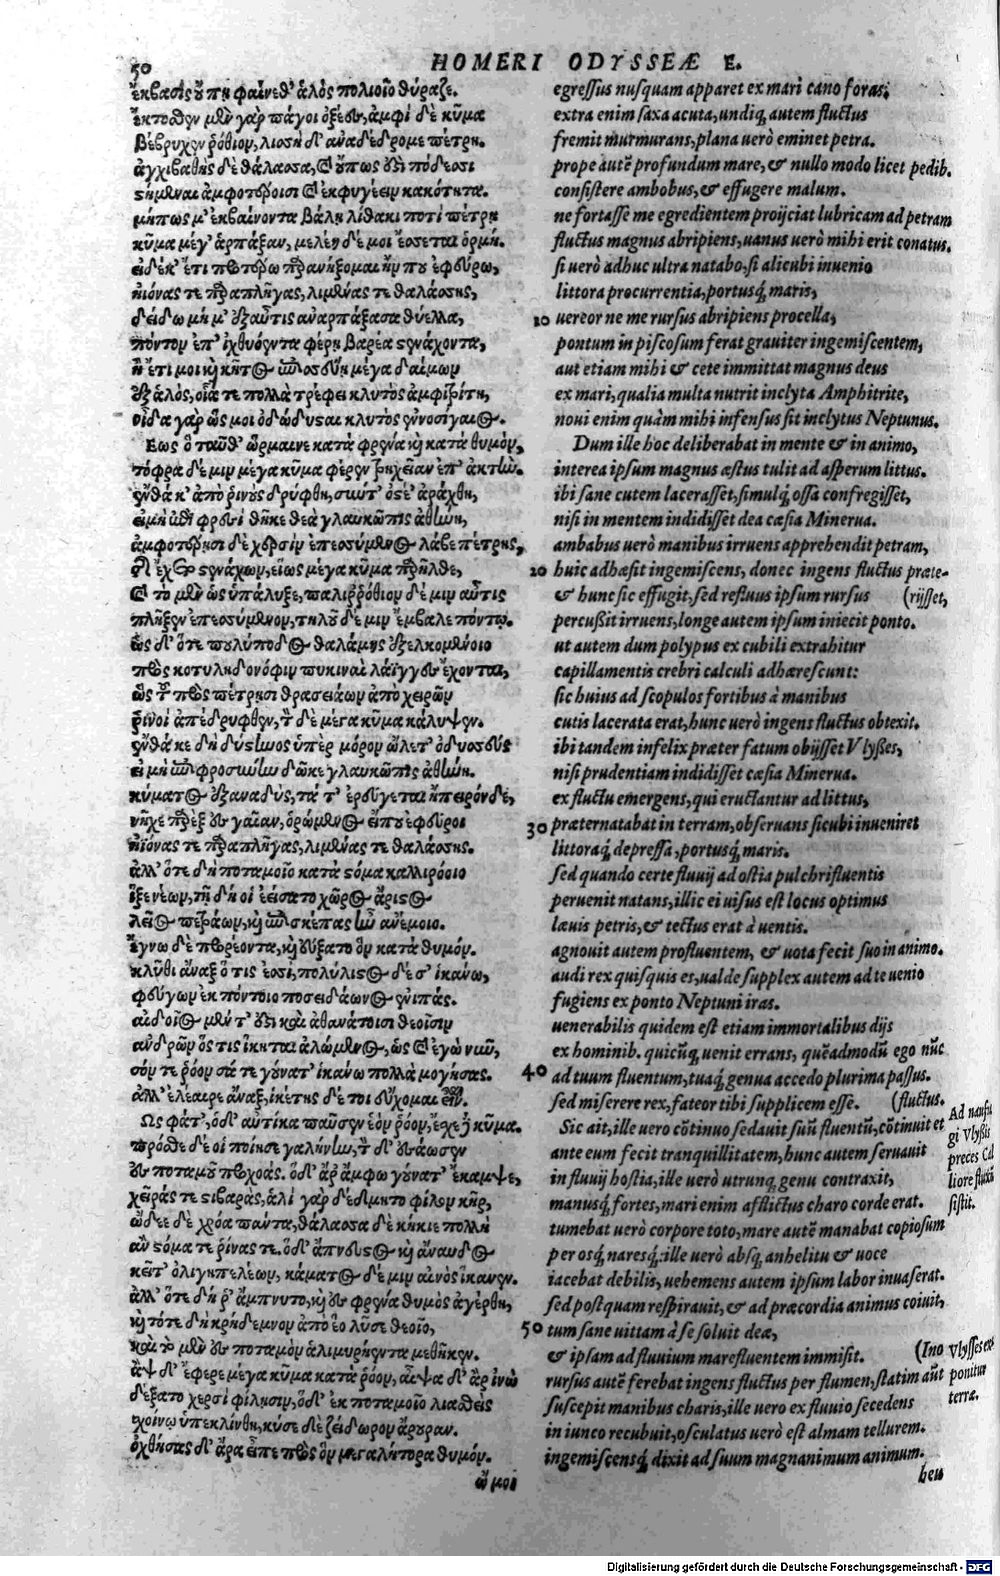 50
HOMERI ODYSSEÆ E.
ἔκβασις οὔ πη φαίνεθ' ἁλὸς πολιοῖο θύραζε.
ἔκτοσθεν μὲν γὰρ πάγοι ὀξέες, ἀμφὶ δὲ κῦμα
βέβρυχεν ῥόθιον, λισσὴ δ' ἀναδέδρομε πέτρη.
ἀγχιβαθὴς δὲ θάλασσα, καὶ οὔπως ἔστι πόδεσσι
στήμεναι ἀμφοτέροισι καὶ ἐκφυγέειν κακότητα.
μήπως μ' ἐκβαίνοντα βάλῃ λίθακι ποτὶ πέτρῃ
κῦμα μέγ' ἁρπάξαν, μελέη δέ μοι ἔσσεται ὁρμή.
εἰ δέ κ' ἔτι προτέρω παρανήξομαι ἤν που ἐφεύρω,
ἠιόνας τε παραπλῆγας, λιμένας τε θαλάσσης,
δείδω μή μ' ἐξαῦτις ἀναρπάξασα θύελλα,
πόντον ἐπ' ἰχθυόεντα φέρῃ βαρέα στενάχοντα,
ἢ ἔτι μοι καὶ κῆτος ἐπισσεύῃ μέγα δαίμων
ἐξ ἁλός, οἷά τε πολλὰ τρέφει κλυτὸς ἀμφιτρίτη,
οἶδα γὰρ ὥς μοι ὀδώδυσαι κλυτὸς ἐννοσίγαιος.
Εως ὃ ταῦθ' ὥρμαινε κατὰ φρένα καὶ κατὰ θυμόν,
τόφρα δέ μιν μέγα κῦμα φέρεν τρηχεῖαν ἐπ' ἀκτήν.
ἔνθά κ' ἀπὸ ῥινοὺς δρύφθη, σὺν τ' ὀστέ' ἀράχθη,
εἰ μὴ ἐπὶ φρεσὶ θῆκε θεὰ γλαυκῶπις ἀθήνη,
ἀμφοτέρῃσι δὲ χερσὶν ἐπεσσύμενος λάβε πέτρης,
τῆς ἔχετο στενάχων, εἵως μέγα κῦμα παρῆλθε,
καὶ τὸ μὲν ὣς ὑπάλυξε, παλιρρόθιον δέ μιν αὖτις
πλῆξεν ἐπεσσύμενον, τηλοῦ δέ μιν ἔμβαλε πόντῳ.
ὡς δ' ὅτε πουλύποδος θαλάμης ἐξελκομένοιο
πρὸς κοτυληδονόφιν πυκιναὶ λάϊγγες ἔχονται,
ὣς τοῦ πρὸς πέτρῃσι θρασειάων ἀπὸ χειρῶν
ῥινοὶ ἀπέδρυφθεν, τὸν δὲ μέγα κῦμα κάλυψεν.
ἔνθά κε δὴ δύστηνος ὑπὲρ μόρον ὤλετ' ὀδυσσεύς
εἰ μὴ ἐπιφροσύνην δῶκε γλαυκῶπις ἀθήνη.
κύματος ἐξαναδύς, τά τ' ἐρεύγεται ἤπειρόνδε,
νῆχε παρὲξ ἐς γαῖαν, ὁρώμενος εἴ που ἐφεύροι
ἠϊόνας τε παραπλῆγας, λιμένας τε θαλάσσης.
ἀλλ' ὅτε δὴ ποταμοῖο κατὰ στόμα καλλιρόοιο
ἷξε νέων, τῇ δή οἱ ἐείσατο χῶρος ἄριστος
λεῖος πετράων, καὶ ἐπὶ σκέπας ἦν ἀνέμοιο.
ἔγνω δὲ προρέοντα, καὶ εὔξατο ὃν κατὰ θυμόν.
κλῦθι ἄναξ ὅ τις ἐσσί, πολύλιστος δέ σ' ἱκάνω,
φεύγων ἐκ πόντοιο ποσειδάωνος ἐνιπάς.
αἰδοῖος μέν τ' ἐστὶ καὶ ἀθανάτοισι θεοῖσιν
ἀνδρῶν ὅς τις ἵκηται ἀλώμενος, ὡς καὶ ἐγὼ νῦν,
σόν τε ῥόον σά τε γούνατ' ἱκάνω πολλὰ μογήσας.
ἀλλ' ἐλέαιρε ἄναξ, ἱκέτης δέ τοι εὔχομαι εἶναι.
Ως φάτ', ὁ δ' αὐτίκα παῦσεν ἑὸν ῥόον, ἔσχε δὲ κῦμα.
πρόσθε δέ οἱ ποίησε γαλήνην, τὸν δ' ἐσάωσεν
ἐς ποταμοῦ προχοάς. ὁ δ' ἄρ' ἄμφω γούνατ' ἔκαμψε,
χεῖράς τε στιβαράς, ἁλὶ γὰρ δέδμητο φίλον κῆρ,
ᾤδεε δὲ χρόα πάντα, θάλασσα δὲ κήκιε πολλὴ
ἂν στόμα τε ῥῖνάς τε. ὁ δ' ἄπνευστος καὶ ἄναυδος
κεῖτ' ὀλιγηπελέων, κάματος δέ μιν αἰνὸς ἵκανεν.
ἀλλ' ὅτε δή ῥ' ἄμπνυτο, καὶ ἐς φρένα θυμὸς ἀγέρθη,
καὶ τότε δὴ κρήδεμνον ἀπὸ ἕο λῦσε θεοῖο,
καὶ τὸ μὲν ἐς ποταμὸν ἁλιμυρήεντα μεθῆκεν.
ἂψ δ' ἔφερε μέγα κῦμα κατὰ ῥόον, αἶψα δ' ἄρ' ἰνὼ
δέξατο χερσὶ φίλῃσιν, ὁ δ' ἐκ ποταμοῖο λιασθεὶς
σχοίνῳ ὑπεκλίνθη, κύσε δὲ ζείδωρον ἄρουραν.
ὀχθήσας δ' ἄρα εἶπε πρὸς ὃν μεγαλήτορα θυμόν.
ὤ μοι
egressus nusquam apparet ex mari cano foras;
extra enim saxa acuta, undiq; autem fluctus
fremit murmurans, plana uerò eminet petra.
prope autē profundum mare, & nullo modo licet pedib.
consistere ambobus, & effugere malum.
ne fortasse me egredientem proijciat lubricam ad petram
fluctus magnus abripiens, uanus uerò mihi erit conatus.
si uerò adhuc ultra natabo, si alicubi inuenio
littora procurrentia, portusq́; maris,
10 uereor ne me rursus abripiens procella,
pontum in piscosum ferat grauiter ingemiscentem,
aut etiam mihi & cete immittat magnus deus
ex mari, qualia multa nutrit inclyta Amphitrite,
noui enim quàm mihi infensus sit inclytus Neptunus.
Dum ille hoc deliberabat in mente & in animo,
interea ipsum magnus æstus tulit ad asperum littus.
ibi sane cutem lacerasset, simulq́; ossa confregisset,
nisi in mentem indidisset dea cæsia Minerua.
ambabus uerò manibus irruens apprehendit petram,
20 huic adhæsit ingemiscens, donec ingens fluctus præte-
& hunc sic effugit, sed refluus ipsum rursus (rijsset,
percußit irruens, longe autem ipsum iniecit ponto.
ut autem dum polypus ex cubili extrahitur
capillamentis crebri calculi adhærescunt:
sic huius ad scopulos fortibus à manibus
cutis lacerata erat, hunc uerò ingens fluctus obtexit.
ibi tandem infelix præter fatum obijsset Vlyßes,
nisi prudentiam indidisset cæsia Minerua.
ex fluctu emergens, qui eructantur ad littus,
30 præternatabat in terram, obseruans sicubi inueniret
littoraq́; depressa, portusq́; maris.
sed quando certe fluuij ad ostia pulchrifluentis
peruenit natans, illic ei uisus est locus optimus
læuis petris, & tectus erat à uentis.
agnouit autem profluentem, & uota fecit suo in animo.
audi rex quisquis es, ualde supplex autem ad te uenio
fugiens ex ponto Neptuni iras.
uenerabilis quidem est etiam immortalibus dijs
ex hominib. quicūq; uenit errans, quēadmodū ego nūc
40 ad tuum fluentum, tuaq́; genua accedo plurima passus.
sed miserere rex, fateor tibi supplicem esse. (fluctus.
Sic ait, ille uero cōtinuo sedauit suū fluentū, cōtinuit et
ante eum fecit tranquillitatem, hunc autem seruauit
in fluuij hostia, ille uerò utrunq; genu contraxit,
manusq́; fortes, mari enim afflictus charo corde erat.
tumebat uerò corpore toto, mare autē manabat copiosum
per osq́; naresq́;: ille uerò absq; anhelitu & uoce
iacebat debilis, uehemens autem ipsum labor inuaserat.
sed postquam respirauit, & ad præcordia animus coiuit,
50 tum sane uittam à se soluit deæ,
& ipsam ad fluuium marefluentem immisit. (Ino
rursus autē ferebat ingens fluctus per flumen, statim aūt
suscepit manibus charis, ille uero ex fluuio secedens
in iunco recubuit, osculatus uerò est almam tellurem.
ingemiscensq́; dixit ad suum magnanimum animum.
heu
Ad naufu
gi Vlyßis
preces Cal
liore fluxū
sistit.
Vlysses ex
ponitur
terræ.
Digitalisierung gefördert durch die Deutsche Forschungsgemeinschaft - DFG